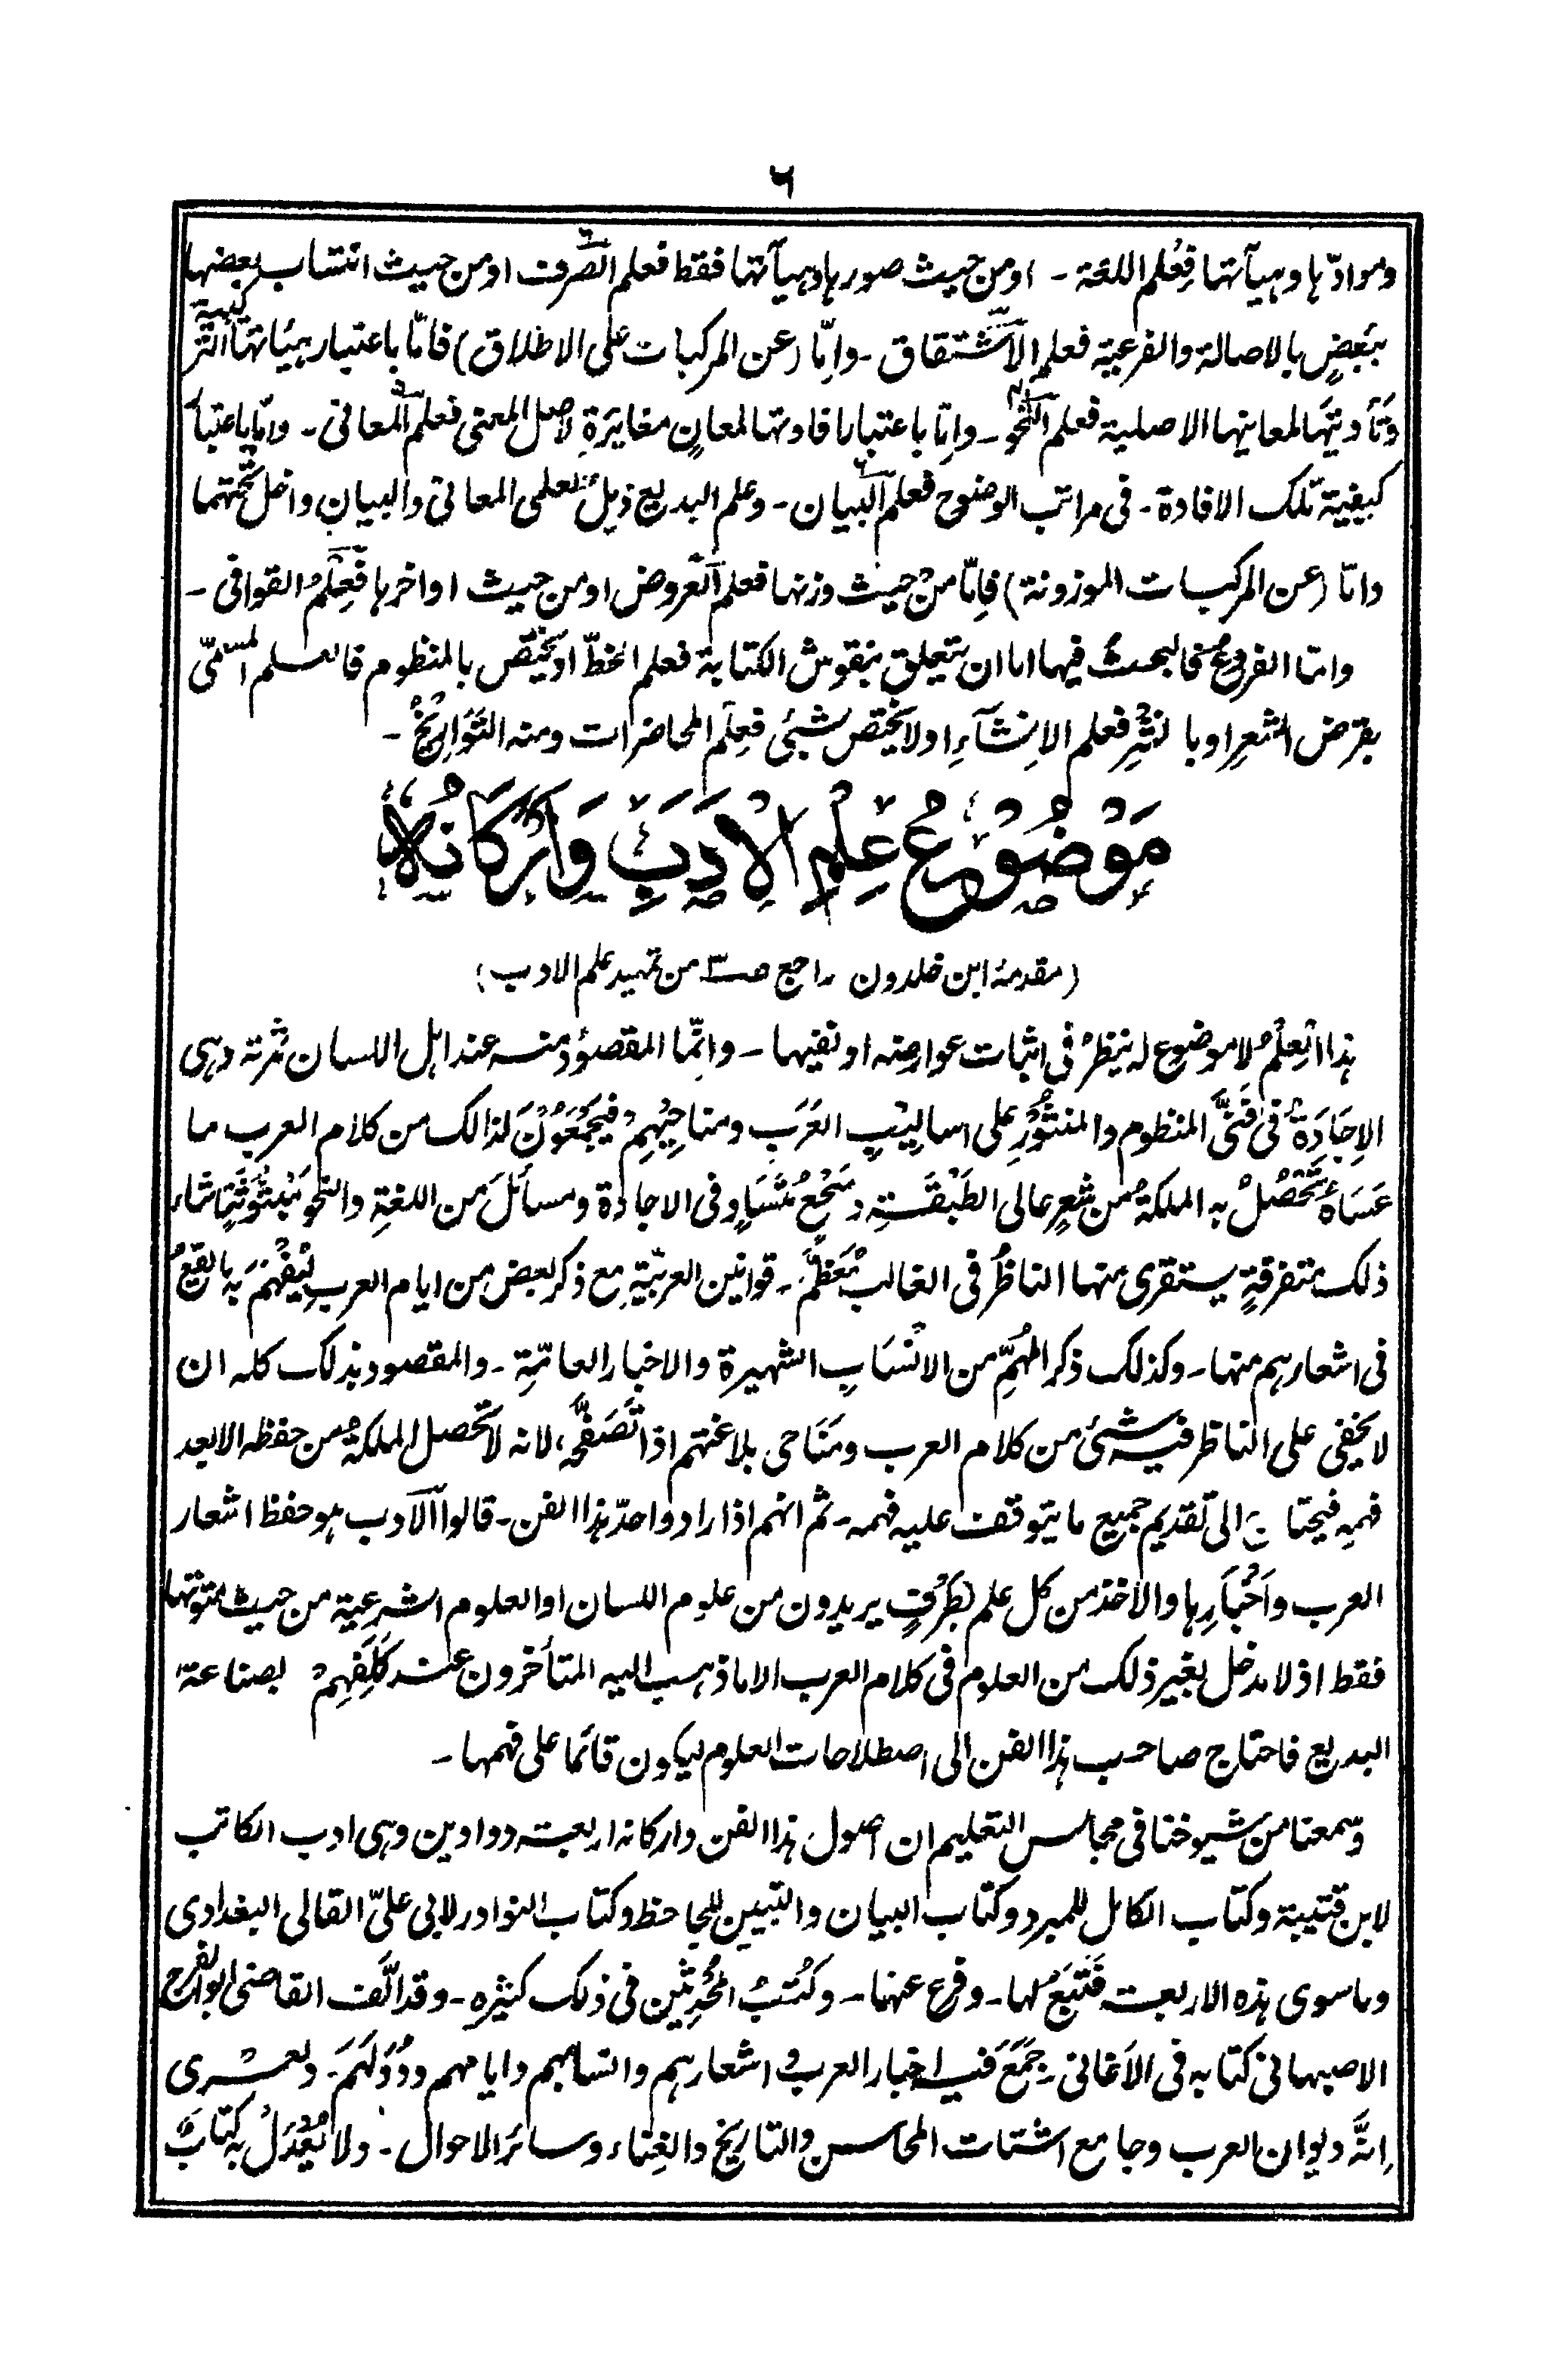 ٦
وموادّها وهيآتها فعُلم اللغة - اومن حيث صورها وهيآتها فقط فعلم الصّرف اومن حيث انتساب بعضها
ببَعضٍ بالاصالة والفرعية فعلم الاشتقاق - وامّا (عن المركبات على الاطلاق) فامّا باعتبار هيئاتها التركيبية
وتأديتها لمعانيها الاصلية فعلم النّحو - وامّا باعتبار افادتها لمعانٍ مغايرَةٍ لاصل المعنى فعلم المعانى - وامّا باعتبار
كيفية تلك الافادة - فى مراتب الوضوح فعلم البيان - وعلم البديع ذيلٌ لعلمى المعانى والبيان داخل تحتهما
وامّا (عن المركبات الموزونة) فامّا من حيث وزنها فعلم العروض اومن حيث اواخرها فعِلمُ القوافى -
وامّا الفروع فالبحث فيها اما ان يتعلق بنقوش الكتابة فعلم الخطّ او يختص بالمنظوم فالعلم المسمّى
بقرض الشعرِ اوبا لنثرِ فعلم الاِنشآءِ اولا يختص بشيئ فعلم المحاضرات ومنه التوَارِيْخُ -
مَوْضُوْعُ عِلْمِ الاَدَبِ وَاَرْكَانُهٗ
(مقدمة ابن خلدون راجع صـ٣ من تمهيد علم الادب)
هذا العِلْمُ لا موضوع له ينظرُ فى اثبات عوارضه او نفيها - وانّما المقصوْد منه عند اهل اللسان ثمرته وهى
الاِجَادَةُ فى فَنَّىِ المنظوم والمنثوْرِ على اساليْبِ العَرَبِ ومناحِيْهِمْ فيَجْمَعُوْنَ لذالك من كلام العرب ما
عَسَاهُ تَحْصُلُ به الملكةُ من شعرٍ عالى الطَبْقَةِ وسَجْعٍ مُتَسَاوٍ فى الاجادة ومسائلَ من اللغةِ والنحوِ مَبْثُوْثَةٍ اثناء
ذلك متفرقةٍ يستقرى منها الناظرُ فى الغالب مُعَظَّمَ - قوانين العربيّةِ مع ذكر بعض من ايام العربِ ليُفْهَمَ به ما يقعُ
فى اشعارهم منها - وكذلك ذكر المُهِمِّ من الانْسَابِ الشهيرة والاخبار العامّةِ - والمقصود بذلك كله ان
لا يخفى على الناظر فيه شئ من كلام العرب ومَنَاحى بلاغتهم اذا تَصَفَّحَهُ، لانه لا تحصل الملكةُ من حفظه الا بعد
فهمِه فيحتاج الى تقديم جميع ما يتوقف عليه فهمه - ثم انهم اذا ارادوا حدّ هذا الفن - قالوا الاَدب هو حفظ اشعار
العرب واَخْبَارِها والاَخذ من كل علم بطَرْفٍ يريدون من علوم اللسان او العلوم الشرعية من حيث متونها
فقط اذ لا مدخل بغير ذلك من العلوم فى كلام العرب الا ما ذهب اليه المتأخرون عند كَلَفِهِمْ بصناعة
البديع فاحتاج صاحب هذا الفن الى اصطلاحات العلوم ليكون قائما على فهمها -
وسمعنا من شيوخنا فى مجالس التعليم ان اصول هذا الفن واركانه اربعة دواوين وهى ادب الكاتب
لابن قتيبة وكتاب الكامل للمبرد وكتاب البيان والتبيين للجاحظ وكتاب النوادر لابى علىّ القالى البغدادى
وما سوى هذه الاربعة فَتَبَعٌ لها - وفرع عنها - وكُتُبُ المُحْدِثين فى ذلك كثيره - وقد الَّف القاضى ابو الفرج
الاصبهانى كتابه فى الاَغانى - جَمَعَ فيه اخبار العرب و اشعارهم وانسابهم وايامهم ودُوَلَهَمْ - ولعمرى
اِنَّهٗ ديوان العرب وجامع اشتات المحاسن والتاريخ والغِناء وسائر الاحوال - ولا يُعْدَلُ به كتابٌ